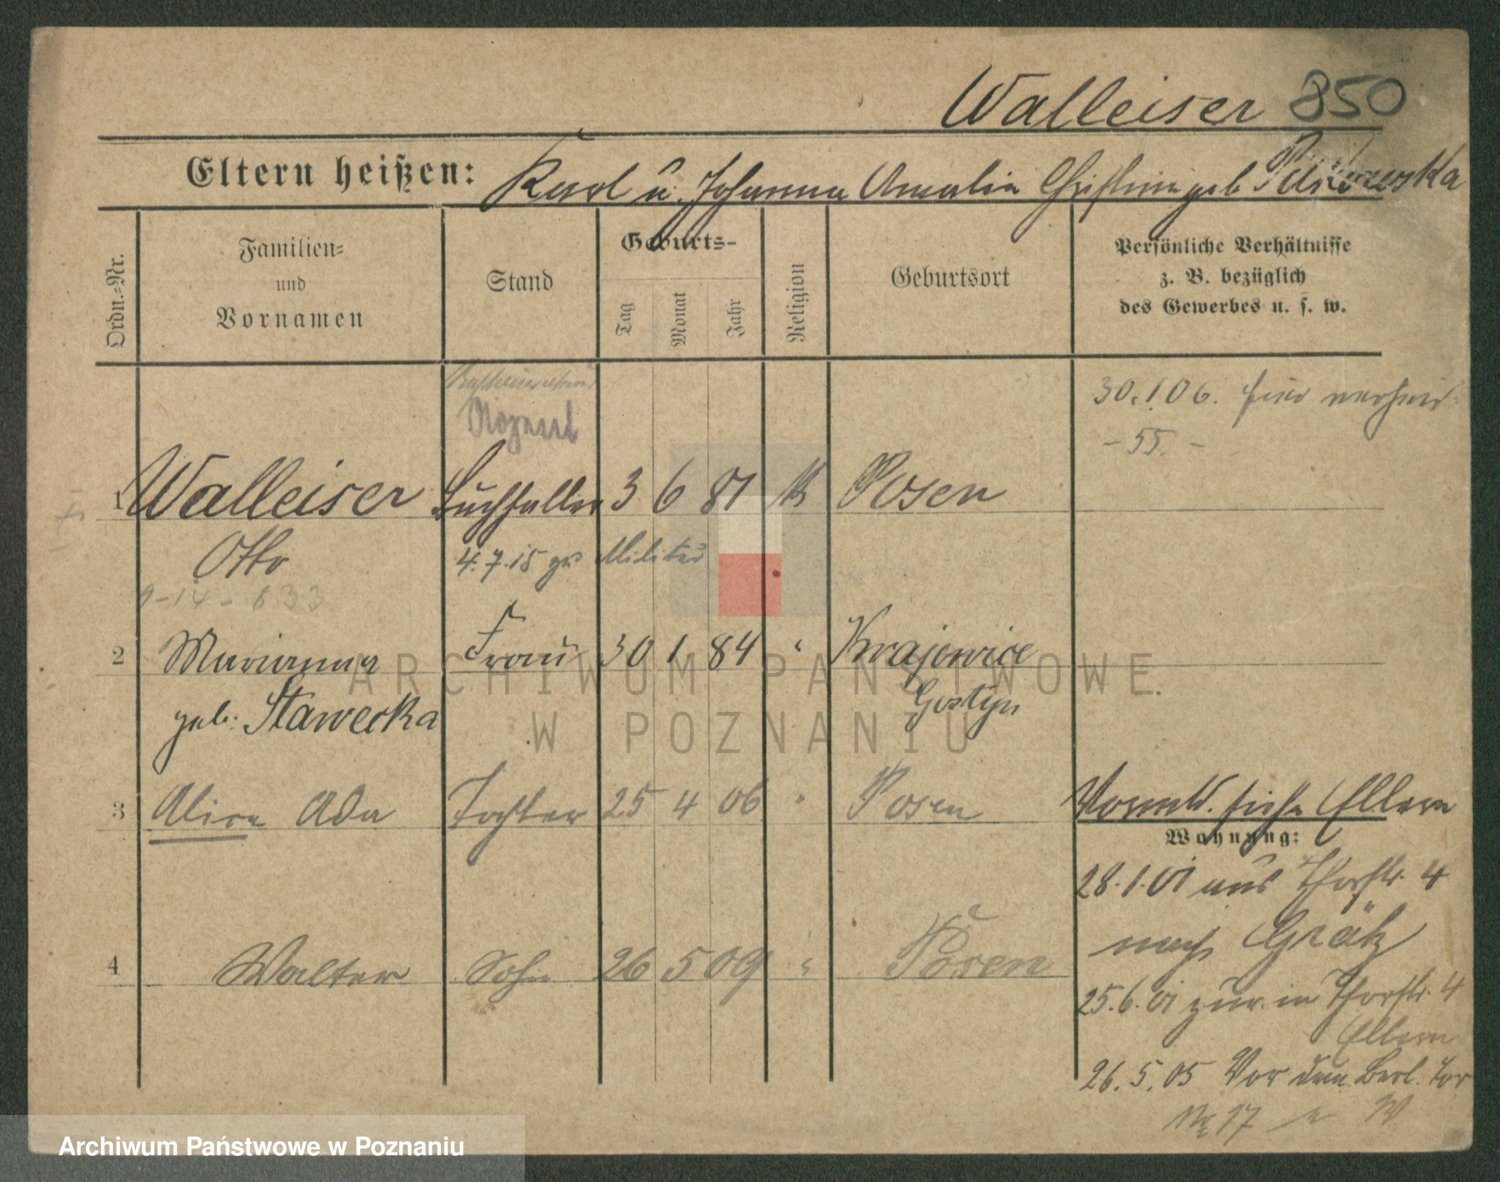 Walleiser 850
Eltern heißen: Karl u. Johanna Amalia Christine geb.
Ordn.-Nr.
Familien-
und
Vornamen
Stand
Geburts-
Tag
Monat
Jahr
Religion
Geburtsort
Persönliche Verhältnisse
z. B. bezüglich
des Gewerbes u. s. w.
30.1.06. hier verheir.
- 55. -
1 Walleiser Buchhalter 3 6 81 K Posen
Otto 4.7.15 zu Militär
9-14-833
2 Marianna Frau 30 1 84 " Krajewice
geb. Stawecka Gostyn
3 Alice Ada Tochter 25 4 06 " Posen
Vormld. siehe Eltern
Wohnung:
28.1.01 aus Thorstr. 4
nach Grätz
4 Walter Sohn 26 5 09 " Posen
25.6.01 zur. in Thorstr. 4
Eltern
26.5.05 Vor dem Berl. Tor
No 17
ARCHIWUM PAŃSTWOWE
W POZNANIU
Archiwum Państwowe w Poznaniu